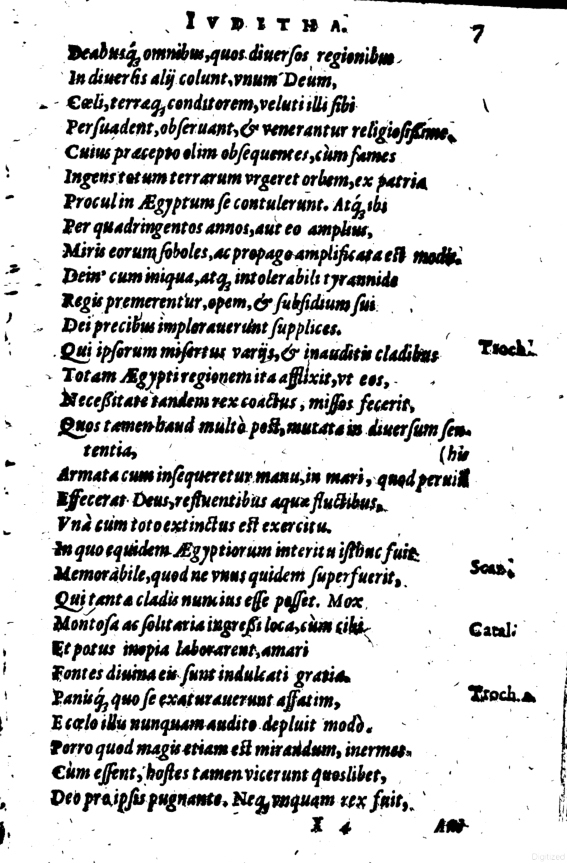 IVDITHA. 7
Deabusq́; omnibus, quos diuersos regionibus
In diuersis alij colunt, vnum Deum,
Cœli, terræq; conditorem, veluti illi sibi
Persuadent, obseruant, & venerantur religiosißime.
Cuius præcepto olim obsequentes, cùm fames
Ingens totum terrarum vrgeret orbem, ex patria
Procul in Ægyptum se contulerunt. Atq́; ibi
Per quadringentos annos, aut eo amplius,
Miris eorum soboles, ac propago amplificata est modis.
Dein' cum iniqua, atq; intolerabili tyrannide
Regis premerentur, opem, & subsidium sui
Dei precibus implorauerunt supplices.
Qui ipsorum misertus varijs, & inauditis cladibus Troch.
Totam Ægypti regionem ita afflixit, vt eos,
Neceßitate tandem rex coactus, missos fecerit,
Quos tamen haud multò pòst, mutata in diuersum sen-
tentia, (his
Armata cum insequeretur manu, in mari, quod peruium
Effecerat Deus, refluentibus aquæ fluctibus,
Vnà cum toto extinctus est exercitu.
In quo equidem Ægyptiorum interitu istbuc fuit
Memorabile, quod ne vnus quidem superfuerit, Scan.
Qui tantæ cladis nuncius esse posset. Mox
Montosa ac solitaria ingreßi loca, cùm cibi Catal.
Et potus inopia laborarent, amari
Fontes diuina eis sunt indulcati gratia.
Panisq́; quo se exaturauerunt affatim, Troch.
E cœlo illis nunquam audito depluit modo.
Porro quod magis etiam est mirandum, inermes
Cùm essent, hostes tamen vicerunt quoslibet,
Deo pro ipsis pugnante. Neq; vnquam rex fuit,
X 4 Aut
Digitized